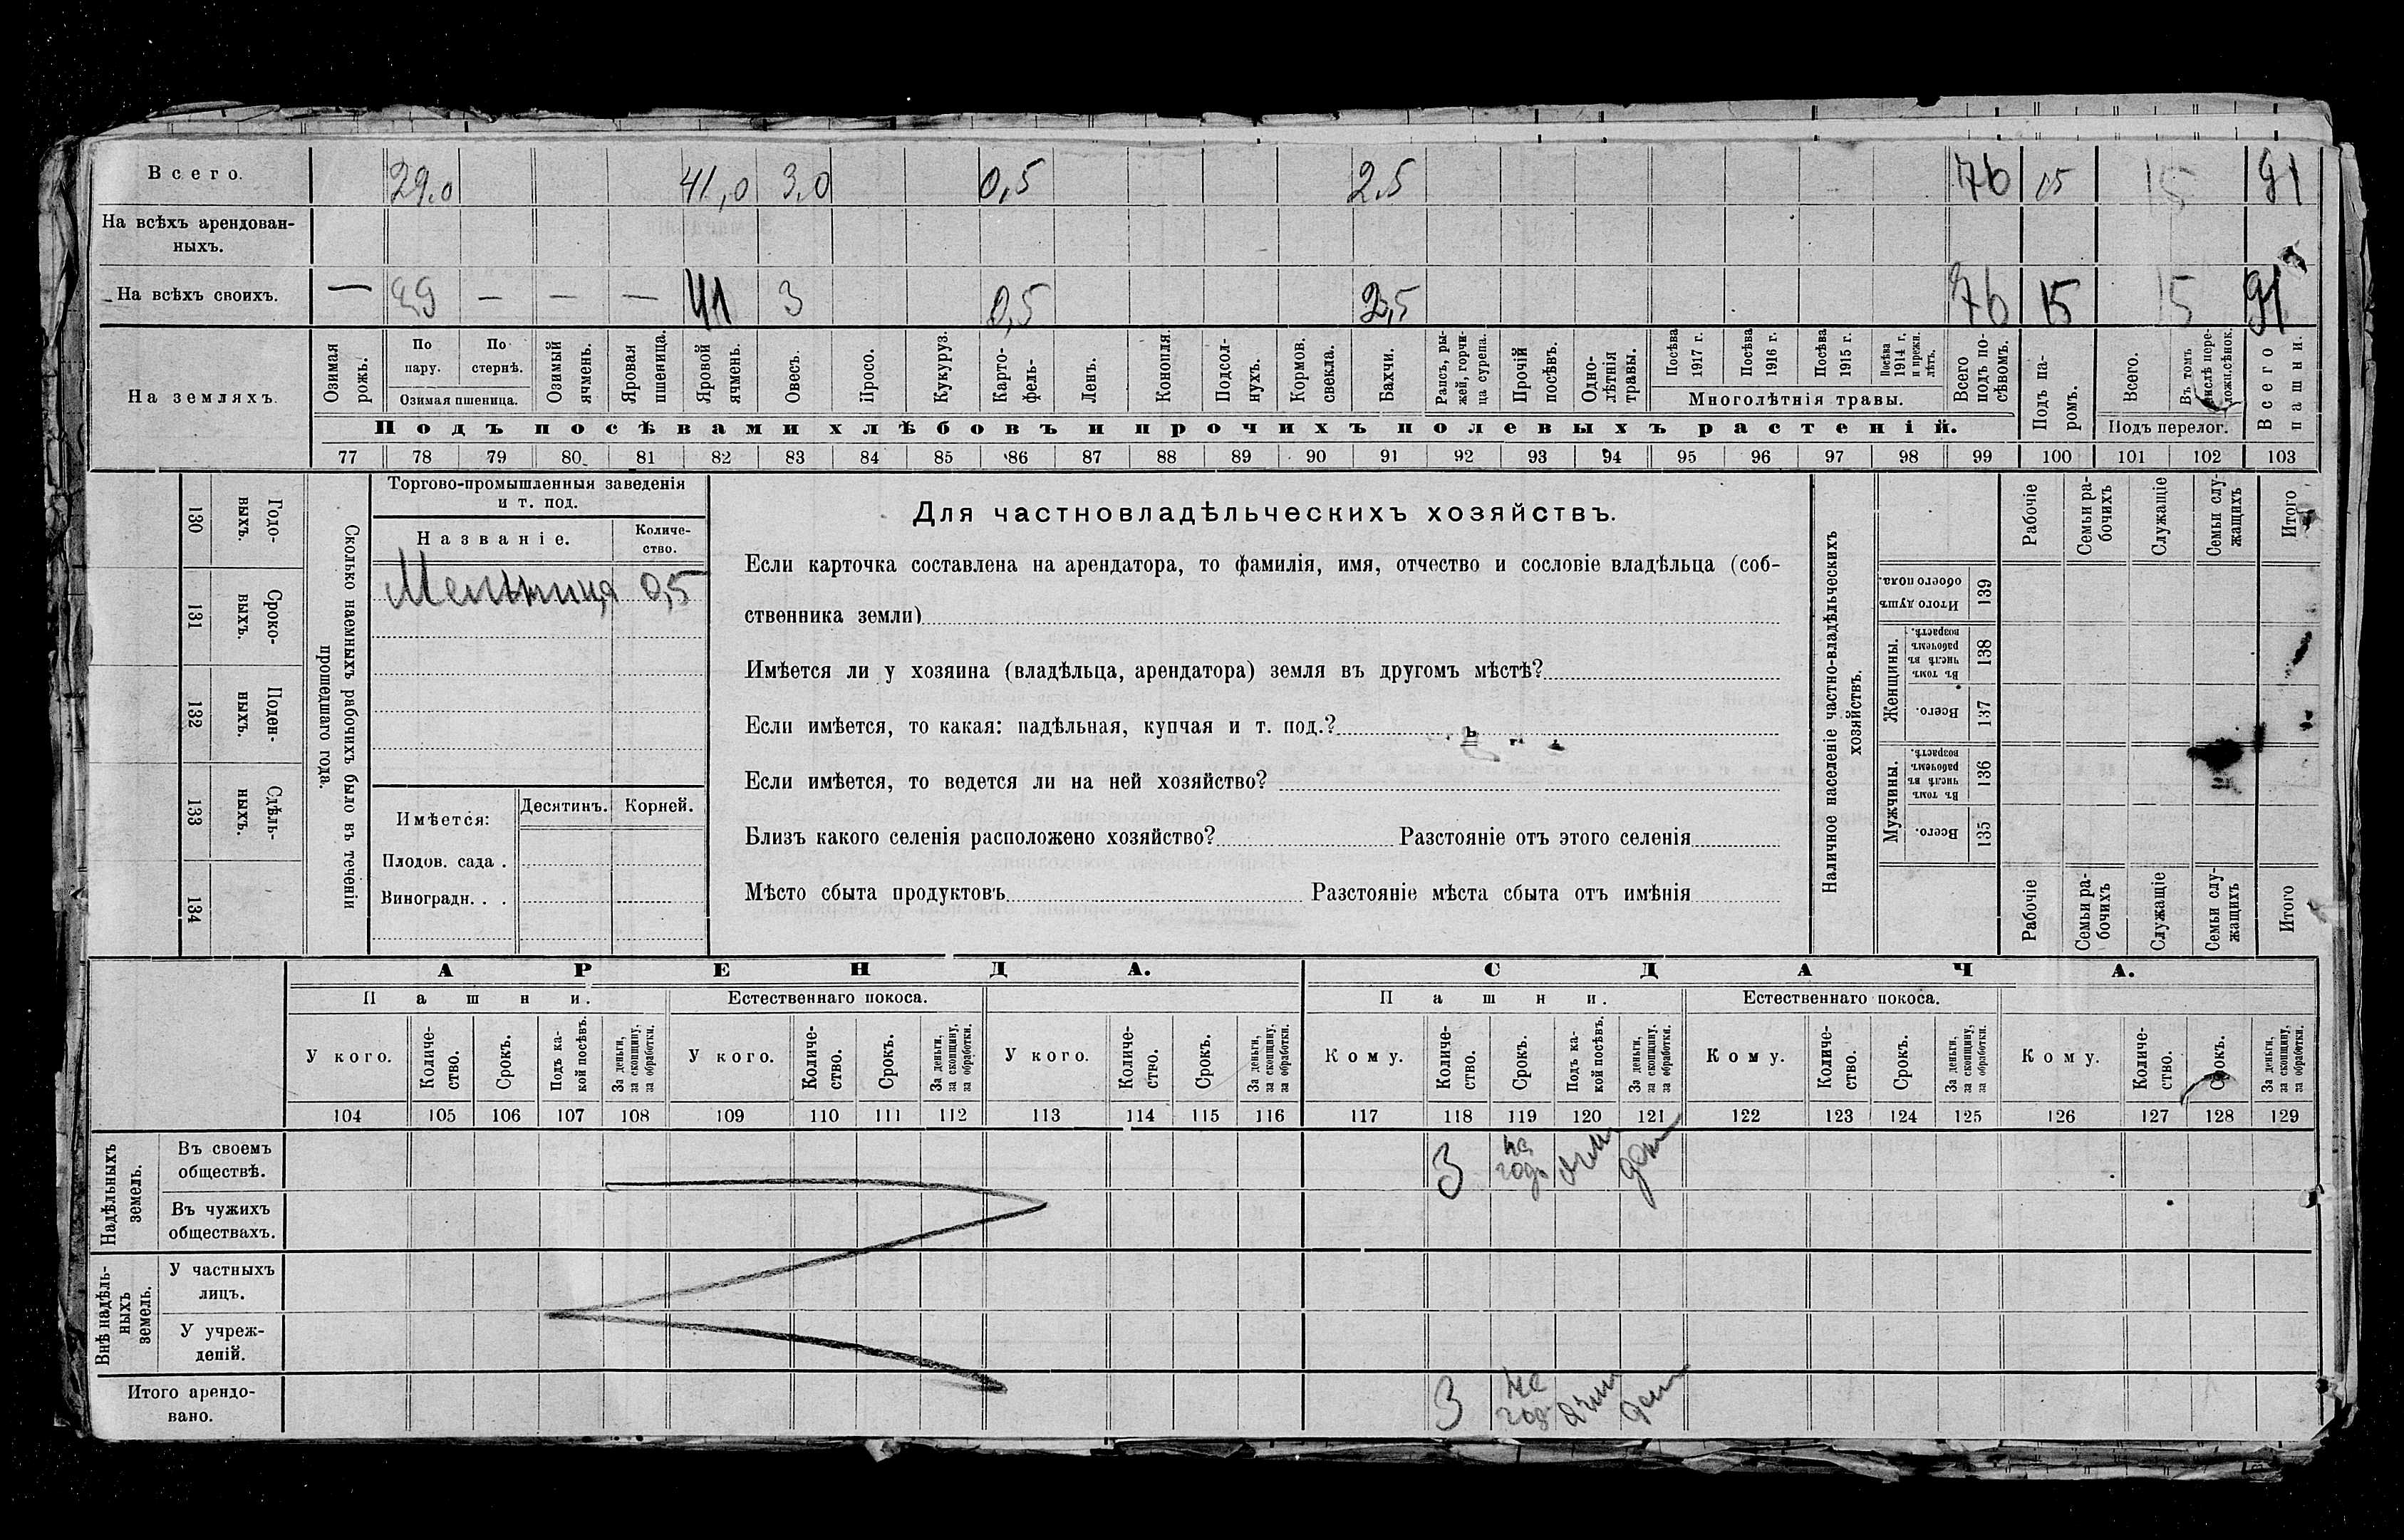 Всего. 29.0 41,0 3,0 0,5 2.5 76 15 15 91
На всѣхъ арендован-
ныхъ.
На всѣхъ своихъ. — 29 — — — 41 3 0,5 2,5 76 15 15 91
На земляхъ.
Озимая рожь.
По пару.
По стернѣ.
Озимая пшеница.
Озимый ячмень.
Яровая пшеница.
Яровой ячмень.
Овесъ.
Просо.
Кукуруз.
Карто-
фель.
Ленъ.
Конопля.
Подсол-
нухъ.
Кормов. свекла.
Бахчи.
Рапсъ, ры-
жей, горчи-
ца сурепа.
Прочій посѣвъ.
Одно-
лѣтнія травы.
Посѣва 1917 г.
Посѣва 1916 г.
Посѣва 1915 г.
Посѣва 1914 г. и прежн. лѣтъ.
Многолѣтнія травы.
Всего подъ по-
сѣвомъ.
Подъ па-
ромъ.
Всего.
Въ томъ числѣ пере-
ложн.сѣнок.
Подъ перелог.
Всего пашни.
Подъ посѣвами хлѣбовъ и прочихъ полевыхъ растеній.
77 78 79 80 81 82 83 84 85 86 87 88 89 90 91 92 93 94 95 96 97 98 99 100 101 102 103
Сколько наемныхъ рабочихъ было въ теченіи
прошедшаго года.
Годо-
выхъ.
130
Сроко-
выхъ.
131
Поден-
ныхъ.
132
Сдѣль-
ныхъ.
133
134
Торгово-промышленныя заведенія
и т. под.
Названіе. Количе-
ство.
Мельница 0,5
Имѣется: Десятинъ. Корней.
Плодов. сада .
Виноградн. . .
Для частновладѣльческихъ хозяйствъ.
Если карточка составлена на арендатора, то фамилія, имя, отчество и сословіе владѣльца (соб-
ственника земли)
Имѣется ли у хозяина (владѣльца, арендатора) земля въ другомъ мѣстѣ?
Если имѣется, то какая: надѣльная, купчая и т. под.?
Если имѣется, то ведется ли на ней хозяйство?
Близъ какого селенія расположено хозяйство? Разстояніе отъ этого селенія
Мѣсто сбыта продуктовъ Разстояніе мѣста сбыта отъ имѣнія
Наличное населеніе частно-владѣльческихъ
хозяйствъ.
Рабочіе
Семьи ра-
бочихъ
Служащіе
Семьи слу-
жащихъ
Итого
Итого душъ обоего пола. 139
Женщины.
Въ томъ числѣ въ рабочемъ возрастѣ. 138
Всего. 137
Мужчины.
Въ томъ числѣ въ рабочемъ возрастѣ. 136
Всего. 135
Рабочіе
Семьи ра-
бочихъ
Служащіе
Семьи слу-
жащихъ
Итого
АРЕНДА. СДАЧА.
Пашни. Естественнаго покоса. Пашни. Естественнаго покоса.
У кого.
Количе-
ство.
Срокъ.
Подъ ка-
кой посѣвъ.
За деньги, за скопщину, за обработки.
У кого.
Количе-
ство.
Срокъ.
За деньги, за скопщину, за обработки.
У кого.
Количе-
ство.
Срокъ.
За деньги, за скопщину, за обработки.
Кому.
Количе-
ство.
Срокъ.
Подъ ка-
кой посѣвъ.
За деньги, за скопщину, за обработки.
Кому.
Количе-
ство.
Срокъ.
За деньги, за скопщину, за обработки.
Кому.
Количе-
ство.
Срокъ.
За деньги, за скопщину, за обработки.
104 105 106 107 108 109 110 111 112 113 114 115 116 117 118 119 120 121 122 123 124 125 126 127 128 129
Надѣльныхъ
земель.
Въ своемъ
обществѣ.
3 на годъ ячм ден
Въ чужихъ
обществахъ.
Внѣ надѣль-
ныхъ
земель.
У частныхъ
лицъ.
У учреж-
деній.
Итого арендо-
вано.
3 на год ячм ден